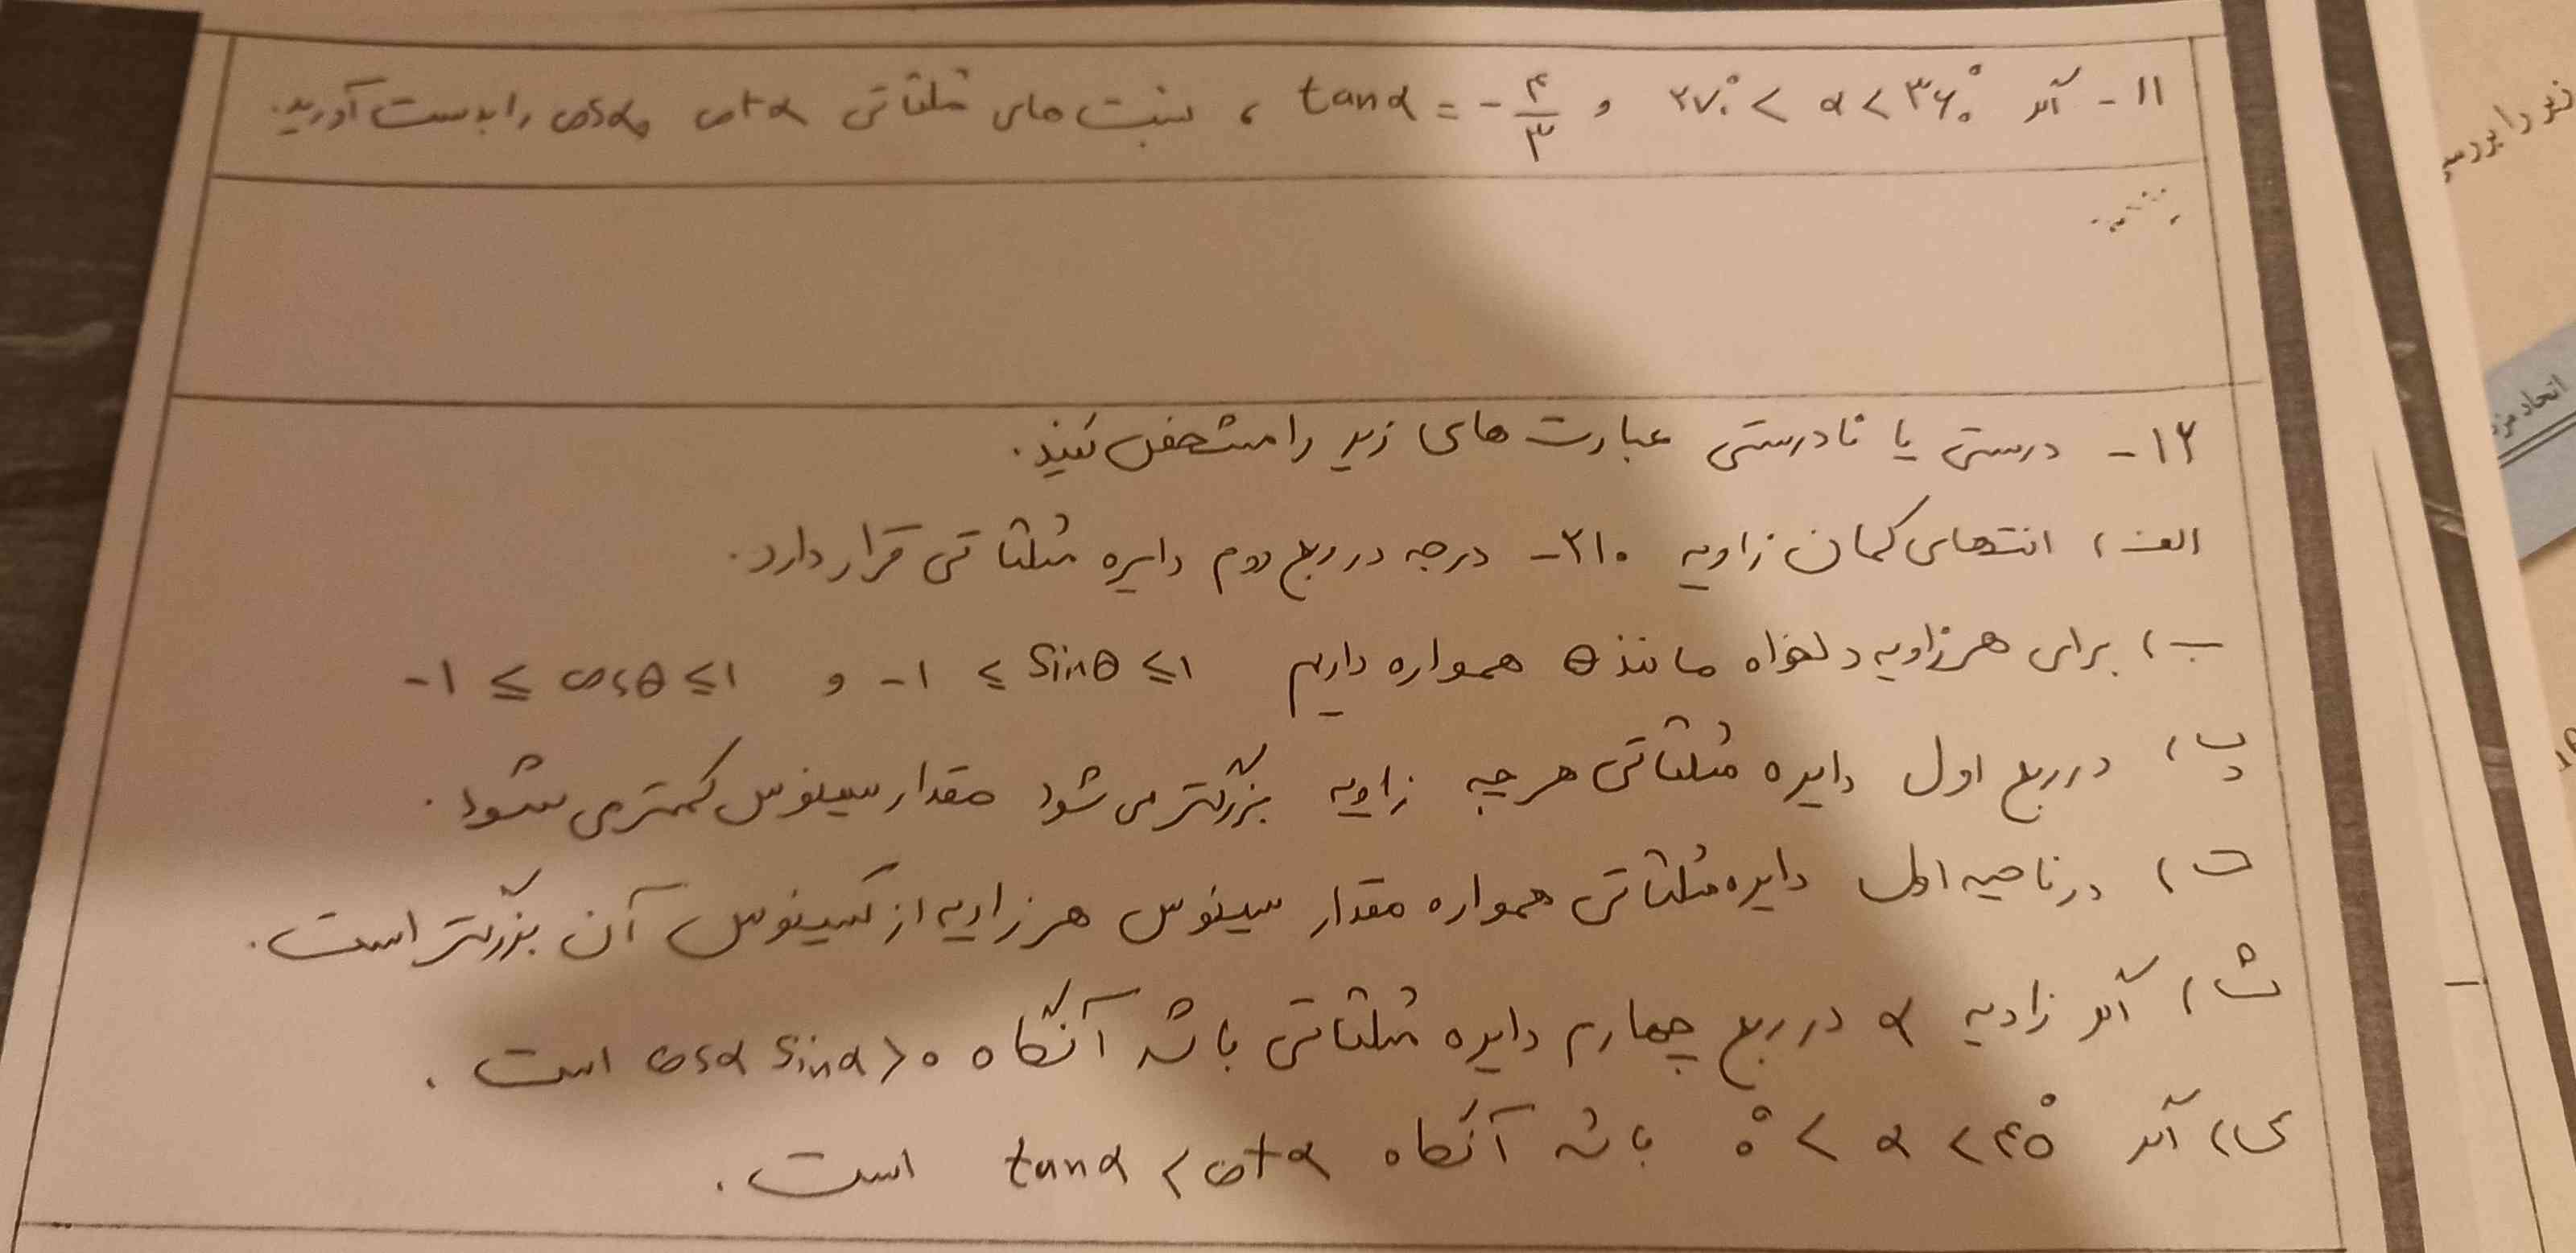 ۱۱- اگر ۲۷۰° < α < ۳۶۰° و tanα = -۴/۳ ، نسبت های مثلثاتی cotα و cosα را بدست آورید.
۱۲- درستی یا نادرستی عبارت های زیر را مشخص کنید.
الف) انتهای کمان زاویه ۲۱۰- درجه در ربع دوم دایره مثلثاتی قرار دارد.
ب) برای هر زاویه دلخواه مانند θ همواره داریم -۱ ≤ sinθ ≤ ۱ و -۱ ≤ cosθ ≤ ۱
پ) در ربع اول دایره مثلثاتی هر چه زاویه بزرگتر می شود مقدار سینوس کمتر می شود.
ت) در ناحیه اول دایره مثلثاتی همواره مقدار سینوس هر زاویه از کسینوس آن بزرگتر است.
ث) اگر زاویه α در ربع چهارم دایره مثلثاتی باشد آنگاه cosα sinα > ۰ است.
ی) اگر ۰° < α < ۴۵° باشد آنگاه tanα < cotα است.
نتو را بررسی
اتحاد مزد